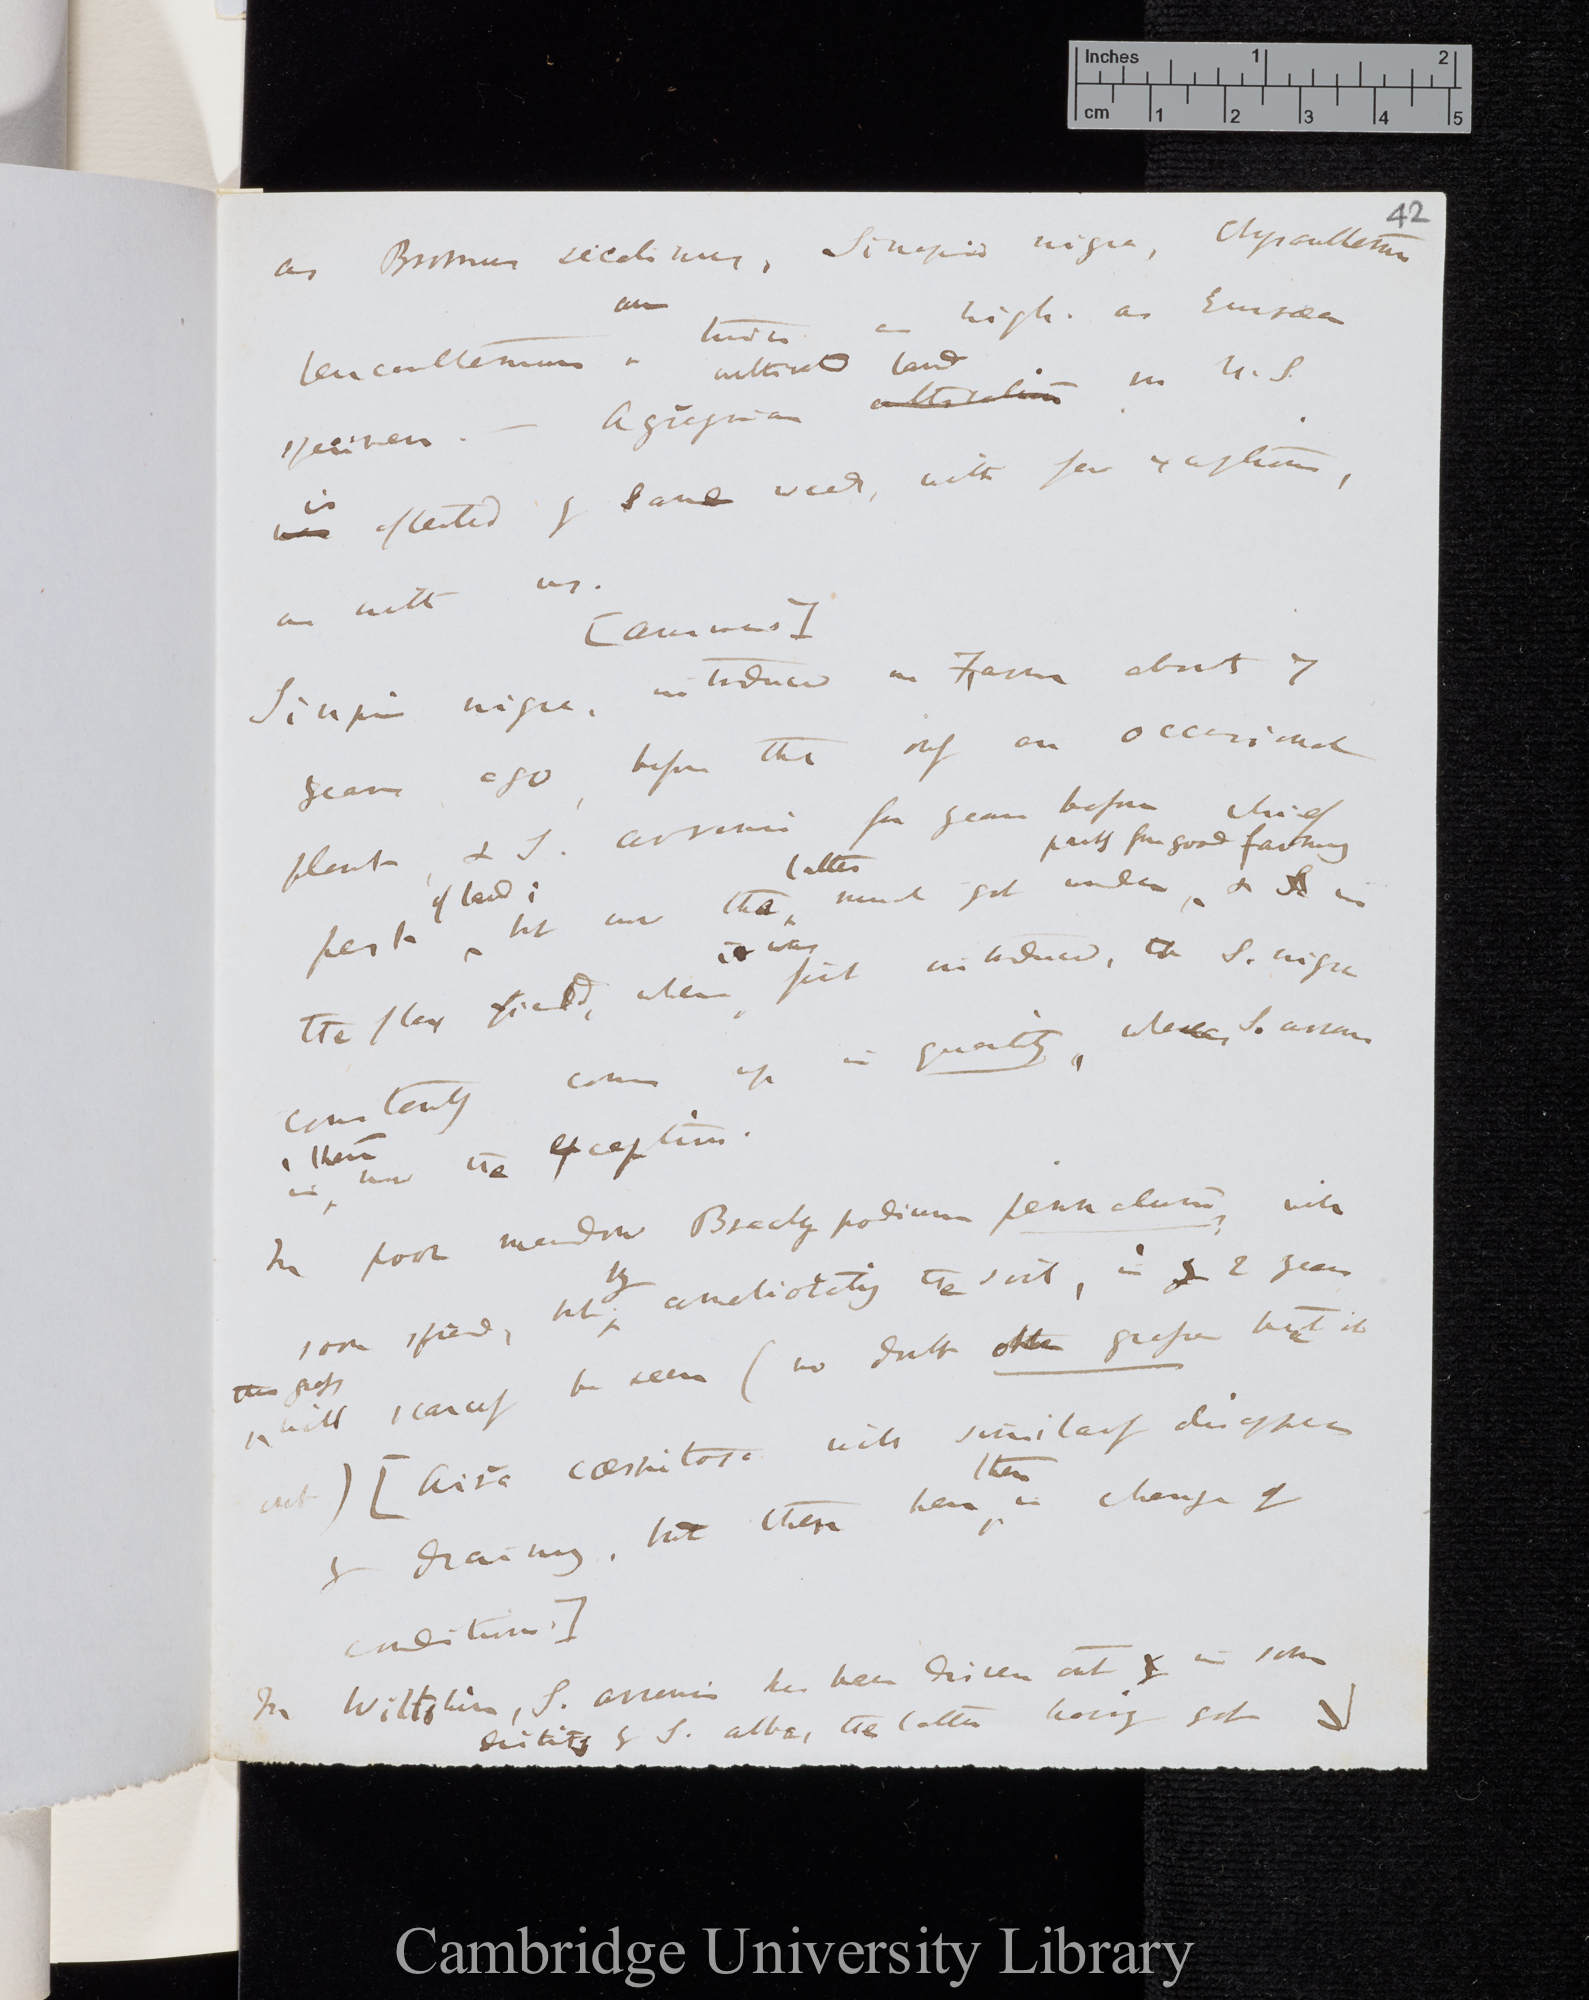 Inches 1 2
cm 1 2 3 4 5
42
as Bromus secalinus, Sinapis nigra, Chrysanthemum
are
leucanthemum twice as high. as European
cultivated land
specimen. — Agregrian cultivation in N. S.
is
was affected by same weeds, with few exceptions,
as with us.
[annuus]
Sinapis nigra, introduced in Farm about 7
years ago, before this only an occasional
plant, & S. arvensis for years before chief
latter partly from good farming
of land;
pest, but now the much got under, & is in
it was
the flax field, when first introduced, the S. nigra
constantly comes up in quantity, whereas S. arvensis
there
is now the exception.
In poor meadow Brachypodium pennatum, will
by
soon spread, but ameliorating the soil, in 2 years
this grass
will scarcely be seen (no doubt other grasses beat it
out) [Aira cæspitosa will similarly disappear
then
by draining, but then here is change of
conditions.]
In Wiltshire, S. arvensis has been driven out in some
districts by S. alba, the latter having got
Cambridge University Library